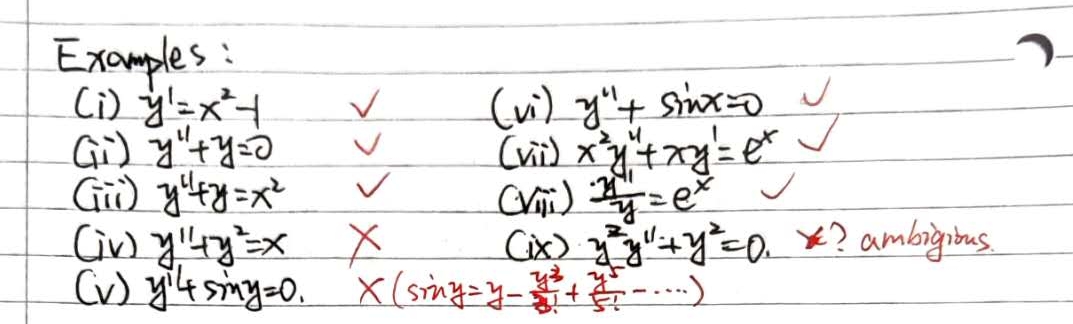 Examples:
(i) y' = x² - 1 ✓
(ii) y'' + y = 0 ✓
(iii) y'' + y = x² ✓
(iv) y'' + y² = x ✗
(v) y'' + sin y = 0. ✗ (sin y = y - y³/3! + y⁵/5! - ....)
(vi) y'' + sin x = 0 ✓
(vii) x²y'' + xy' = eˣ ✓
(viii) y''/y = eˣ ✓
(ix) y²y'' + y² = 0. ✗? ambigious.